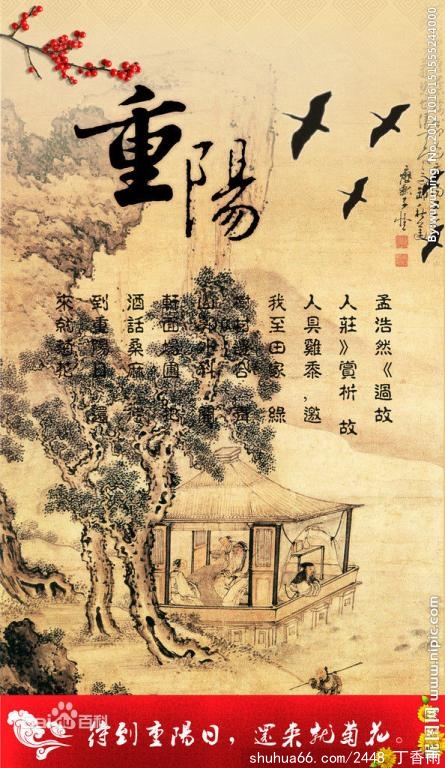 重陽
孟浩然《過故
人莊》賞析 故
人具雞黍,邀
我至田家 綠
樹村邊合
山郭外斜
軒面場圃 把
酒話桑麻 待
到重陽日 還
來就菊花
待到重陽日,還来就菊花。
Bai 百科
shuhua66.com/2448 丁香雨
By:wuyuming No:20121016151555244000
www.nipic.com 昵图网